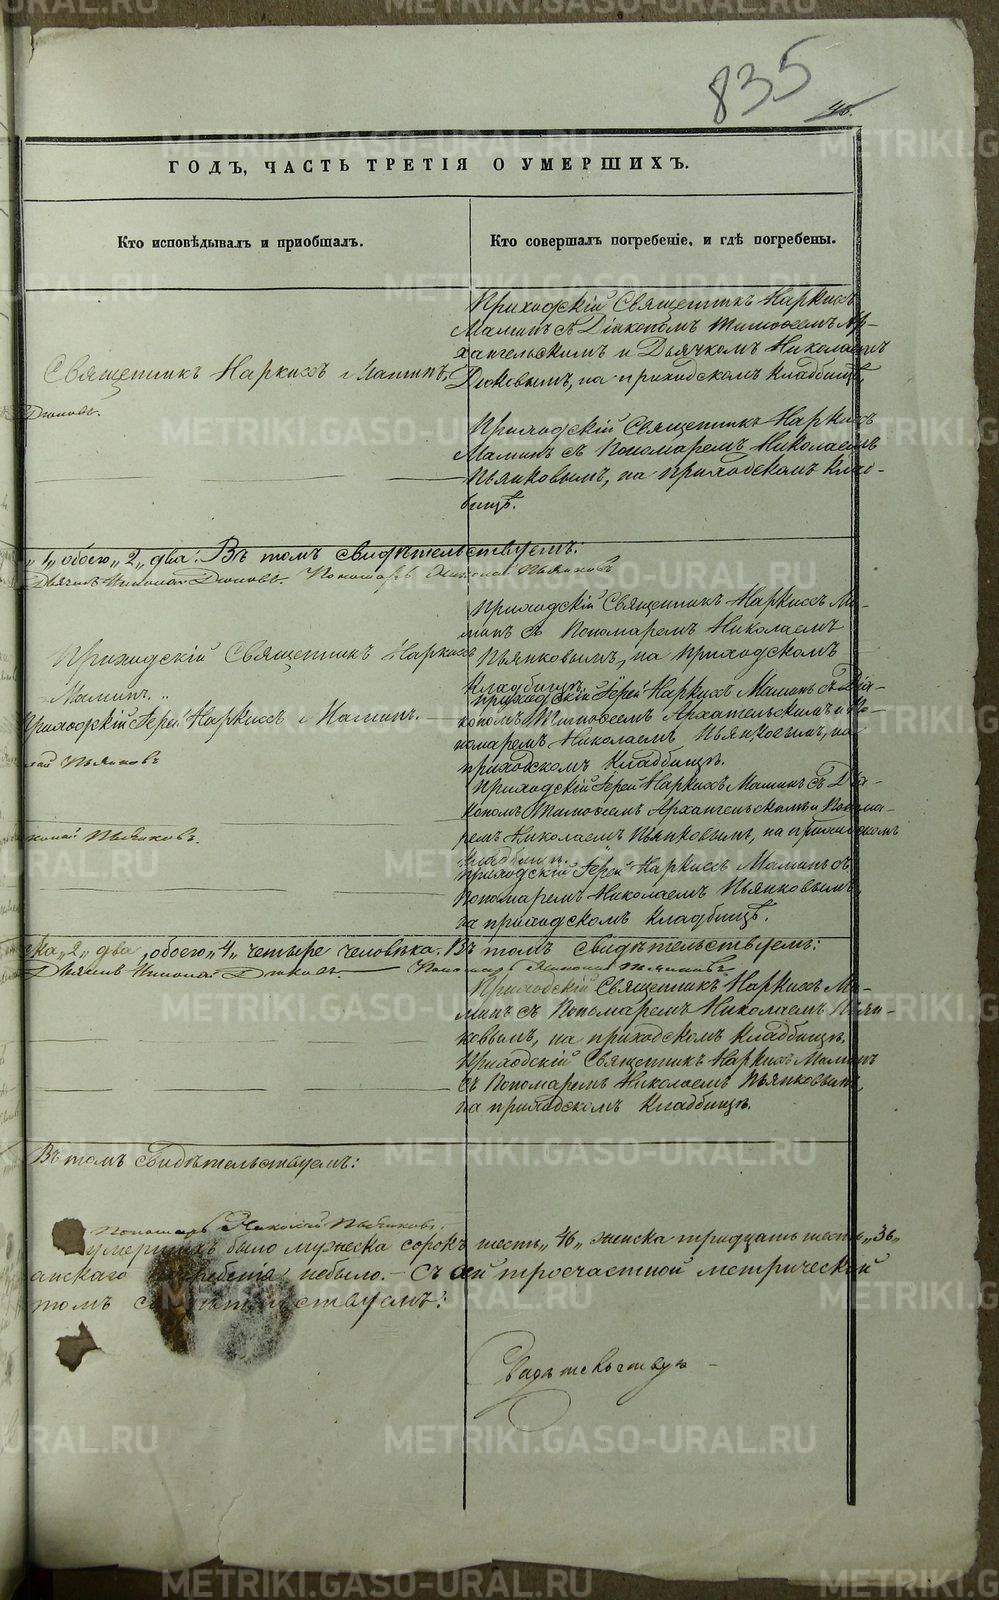 835
46.
ГОДЪ, ЧАСТЬ ТРЕТІЯ О УМЕРШИХЪ.
Кто исповѣдывалъ и пріобщалъ.
Кто совершалъ погребеніе, и гдѣ погребены.
Священникъ Наркисъ Маминъ,
Приходскій Священникъ Наркисъ
Маминъ съ Діакономъ Тимоѳеемъ Ар-
хангельскимъ и Дьячкомъ Николаемъ
на приходскомъ кладбищѣ,
Приходскій Священникъ Наркисъ
Маминъ съ Пономаремъ Николаемъ
Пьянковымъ, на приходскомъ клад-
бищѣ.
„1„ обоего „2„ два: Въ томъ свидѣтельствуемъ:
Дьячекъ Николай Пономарь Николай Пьянковъ
Приходскій Священникъ Наркисъ
Маминъ.
Приходскій Священникъ Наркисъ Ма-
минъ съ Пономаремъ Николаемъ
Пьянковымъ, на приходскомъ
кладбищѣ.
Приходскій Іерей Наркисъ Маминъ.
Приходскій Іерей Наркисъ Маминъ съ Діа-
кономъ Тимоѳеемъ Архангельскимъ и По-
номаремъ Николаемъ Пьянковымъ, на
приходскомъ кладбищѣ.
лай Пьянковъ
Приходскій Іерей Наркисъ Маминъ съ Діа-
кономъ Тимоѳеемъ Архангельскимъ и Понома-
ремъ Николаемъ Пьянковымъ, на приходскомъ
кладбищѣ.
колай Пьянковъ.
Приходскій Іерей Наркисъ Маминъ съ
Пономаремъ Николаемъ Пьянковымъ
на приходскомъ кладбищѣ.
ска „2„ два, обоего „4„ четыре человѣка. Въ томъ свидѣтельствуемъ:
Дьячекъ Николай Пономарь Николай Пьянковъ
Приходскій Священникъ Наркисъ Ма-
минъ съ Пономаремъ Николаемъ Пьян-
ковымъ, на приходскомъ кладбищѣ.
Приходскій Священникъ Наркисъ Маминъ
съ Пономаремъ Николаемъ Пьянковымъ,
на приходскомъ кладбищѣ.
Въ томъ свидѣтельствуемъ:
Пономарь Николай Пьянковъ.
умершихъ было мужеска сорокъ шесть „46„ женска тридцать шесть „36„
небыло. – Съ сей троечастной метрической
томъ свидѣтельствуемъ:
METRIKI.GASO-URAL.RU